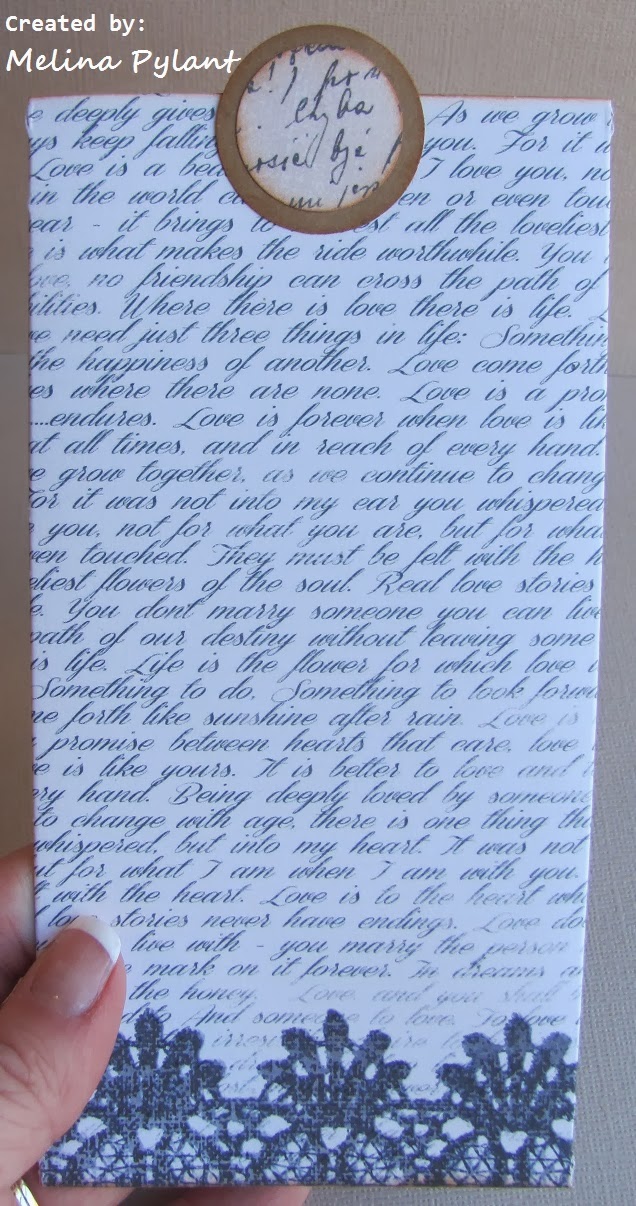 Created by:
Melina Pylant
deeply gives As we grow
keep falling you. For it
Love is a I love you,
in the world or even
it brings to all the loveliest
is what makes the ride worthwhile. You
love, no friendship can cross the path of
Where there is love there is life.
we need just three things in life: Somethin
the happiness of another. Love come forth
es where there are none. Love is a pro
....endures. Love is forever when love is lik
at all times, and in reach of every hand.
e grow together, as we continue to chang
For it was not into my ear you whispered
you, not for what you are, but for what
ven touched. They must be felt with the h
eliest flowers of the soul. Real love stories
e. You dont marry someone you can live
path of our destiny without leaving some
is life. Life is the flower for which love
Something to do, Something to look forwa
me forth like sunshine after rain. Love is
promise between hearts that care, love
e is like yours. It is better to love and
ery hand. Being deeply loved by someone
to change with age, there is one thing th
whispered, but into my heart. It was not
ut for what I am when I am with you.
with the heart. Love is to the heart wha
love stories never have endings. Love do
live with - you marry the person
mark on it forever. In dreams a
the honey. Love, and you shall
And someone to love. To love